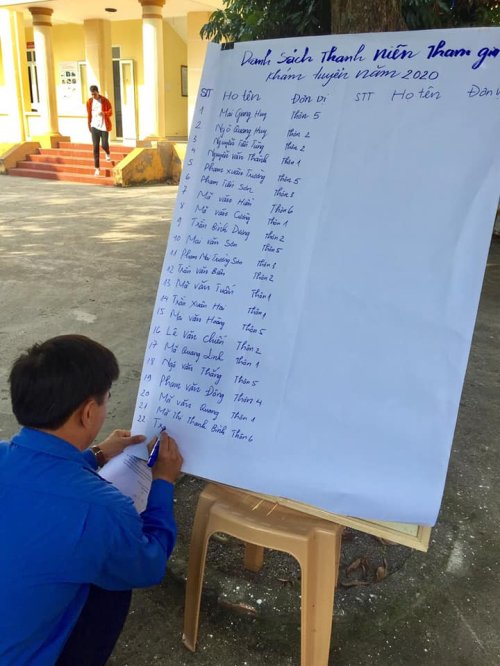 Danh Sách Thanh Niên Tham gia
Khám tuyển năm 2020
STT Họ tên Đơn vị STT Họ tên Đơn vị
1 Mai Quang Huy Thôn 5
2 Ngô Quang Huy Thôn 2
3 Nguyễn Tiến Tùng Thôn 2
4 Nguyễn Văn Thanh Thôn 1
5 Phạm Xuân Trường Thôn 5
6 Phạm Tiến Sơn Thôn 3
7 Mã Văn Hiến Thôn 6
8 Mã Văn Cường Thôn 1
9 Trần Bình Dương Thôn 2
10 Mai Văn Sơn Thôn 5
11 Phạm Trường Sơn Thôn 3
12 Trần Văn Biên Thôn 2
13 Mã Văn Tuấn Thôn 1
14 Trần Xuân Hai Thôn 1
15 Mai Văn Hoàng Thôn 5
16 Lê Văn Chiến Thôn 2
17 Mã Quang Linh Thôn 1
18 Ngô Văn Thắng Thôn 5
19 Phạm Văn Đông Thôn 4
20 Mã Văn Quang Thôn 1
21 Mã Thị Thanh Bình Thôn 6
22